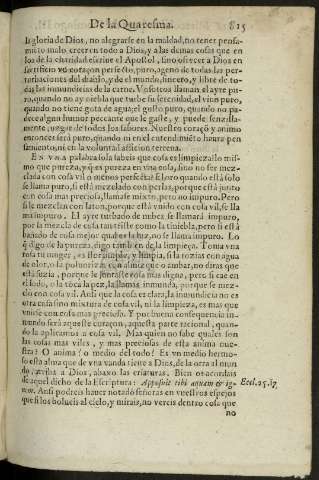 De la Quaresma. 815
la gloria de Dios, no alegrarse en la maldad, no tener pensa-
miẽto malo, creer en todo a Dios, y a las demas cosas que en
los de la charidad escriue el Apostol, sino ofrecer a Dios en
sacrificio vn coraçon perfecto, puro, ageno de todas las per-
turbaciones del diablo, y de el mundo, sincero, y libre de to-
das las inmundicias de la carne. Vosotros llamais el ayre pu-
ro, quando no ay niebla que turbe su serenidad, el vino puro,
quando no tiene gota de agua; el gusto puro, quando no pa-
dece algun humor peccante que le gaste, y puede senzilla-
mente, juzgar de todos los sabores. Nuestro coraçõ y animo
entonces será puro, quando ni en el entendimiẽto haura pen
samiento, ni en la voluntad afficion terrena.
EN vna palabra sola sabeis que cosa es limpieza? lo mis-
mo que pureza, y q̃ es pureza en vna cosa, sino no ser mez-
clada con cosa vil o menos perfecta? El oro quando está solo
se llama puro, si está mezclado con perlas, porque está junto
con cosa mas preciosa, llamase mixto, pero no impuro. Pero
si le mezclas con laton, porque está vnido con cosa vil, se lla
ma impuro. El ayre turbado de nubes se llamará impuro,
por la mezcla de cosa tan triste como la tiniebla, pero si está
bañado de cosa mejor qual es la luz, no se llama impuro. Lo
q̃ digo de la pureza, digo tambien de la limpieça. Toma vna
rosa tu muger, es flor simple, y limpia, si la rozias con agua
de olor, o la poluorizas con almizque o ambar, no diras que
está suzia, porque le juntaste cosa mas digna, pero si cae en
el lodo, o la toca la pez, la llamas inmunda, porque se mez-
clo con cosa vil. Assi que la cosa es clara, la inmundicia no es
otra cosa sino mixtura de cosa vil, ni la limpieza, es mas que
vnirse con cosa mas precioso. Y por buena consequencia in-
mundo será aqueste coraçon, aquesta parte racional, quan-
do la aplicamos a cosa vil. Mas quien no sabe quales son
las cosas mas viles, y mas preciosas de esta anima nue-
stra? O anima! o medio del todo! Es vn medio hermo-
so esta alma que de vna vanda tiene a Dios, de la otra al mun
do, arriba a Dios, abaxo las criaturas. Bien os acordais
de aquel dicho de la Escriptura: Apposuit tibi aquam & ig- Eccl. 15. 17
nem. Assi podreis hauer notado señoras en vuestros espejos
que si los bolueis al cielo, y mirais, no vereis dentro cosa que
no